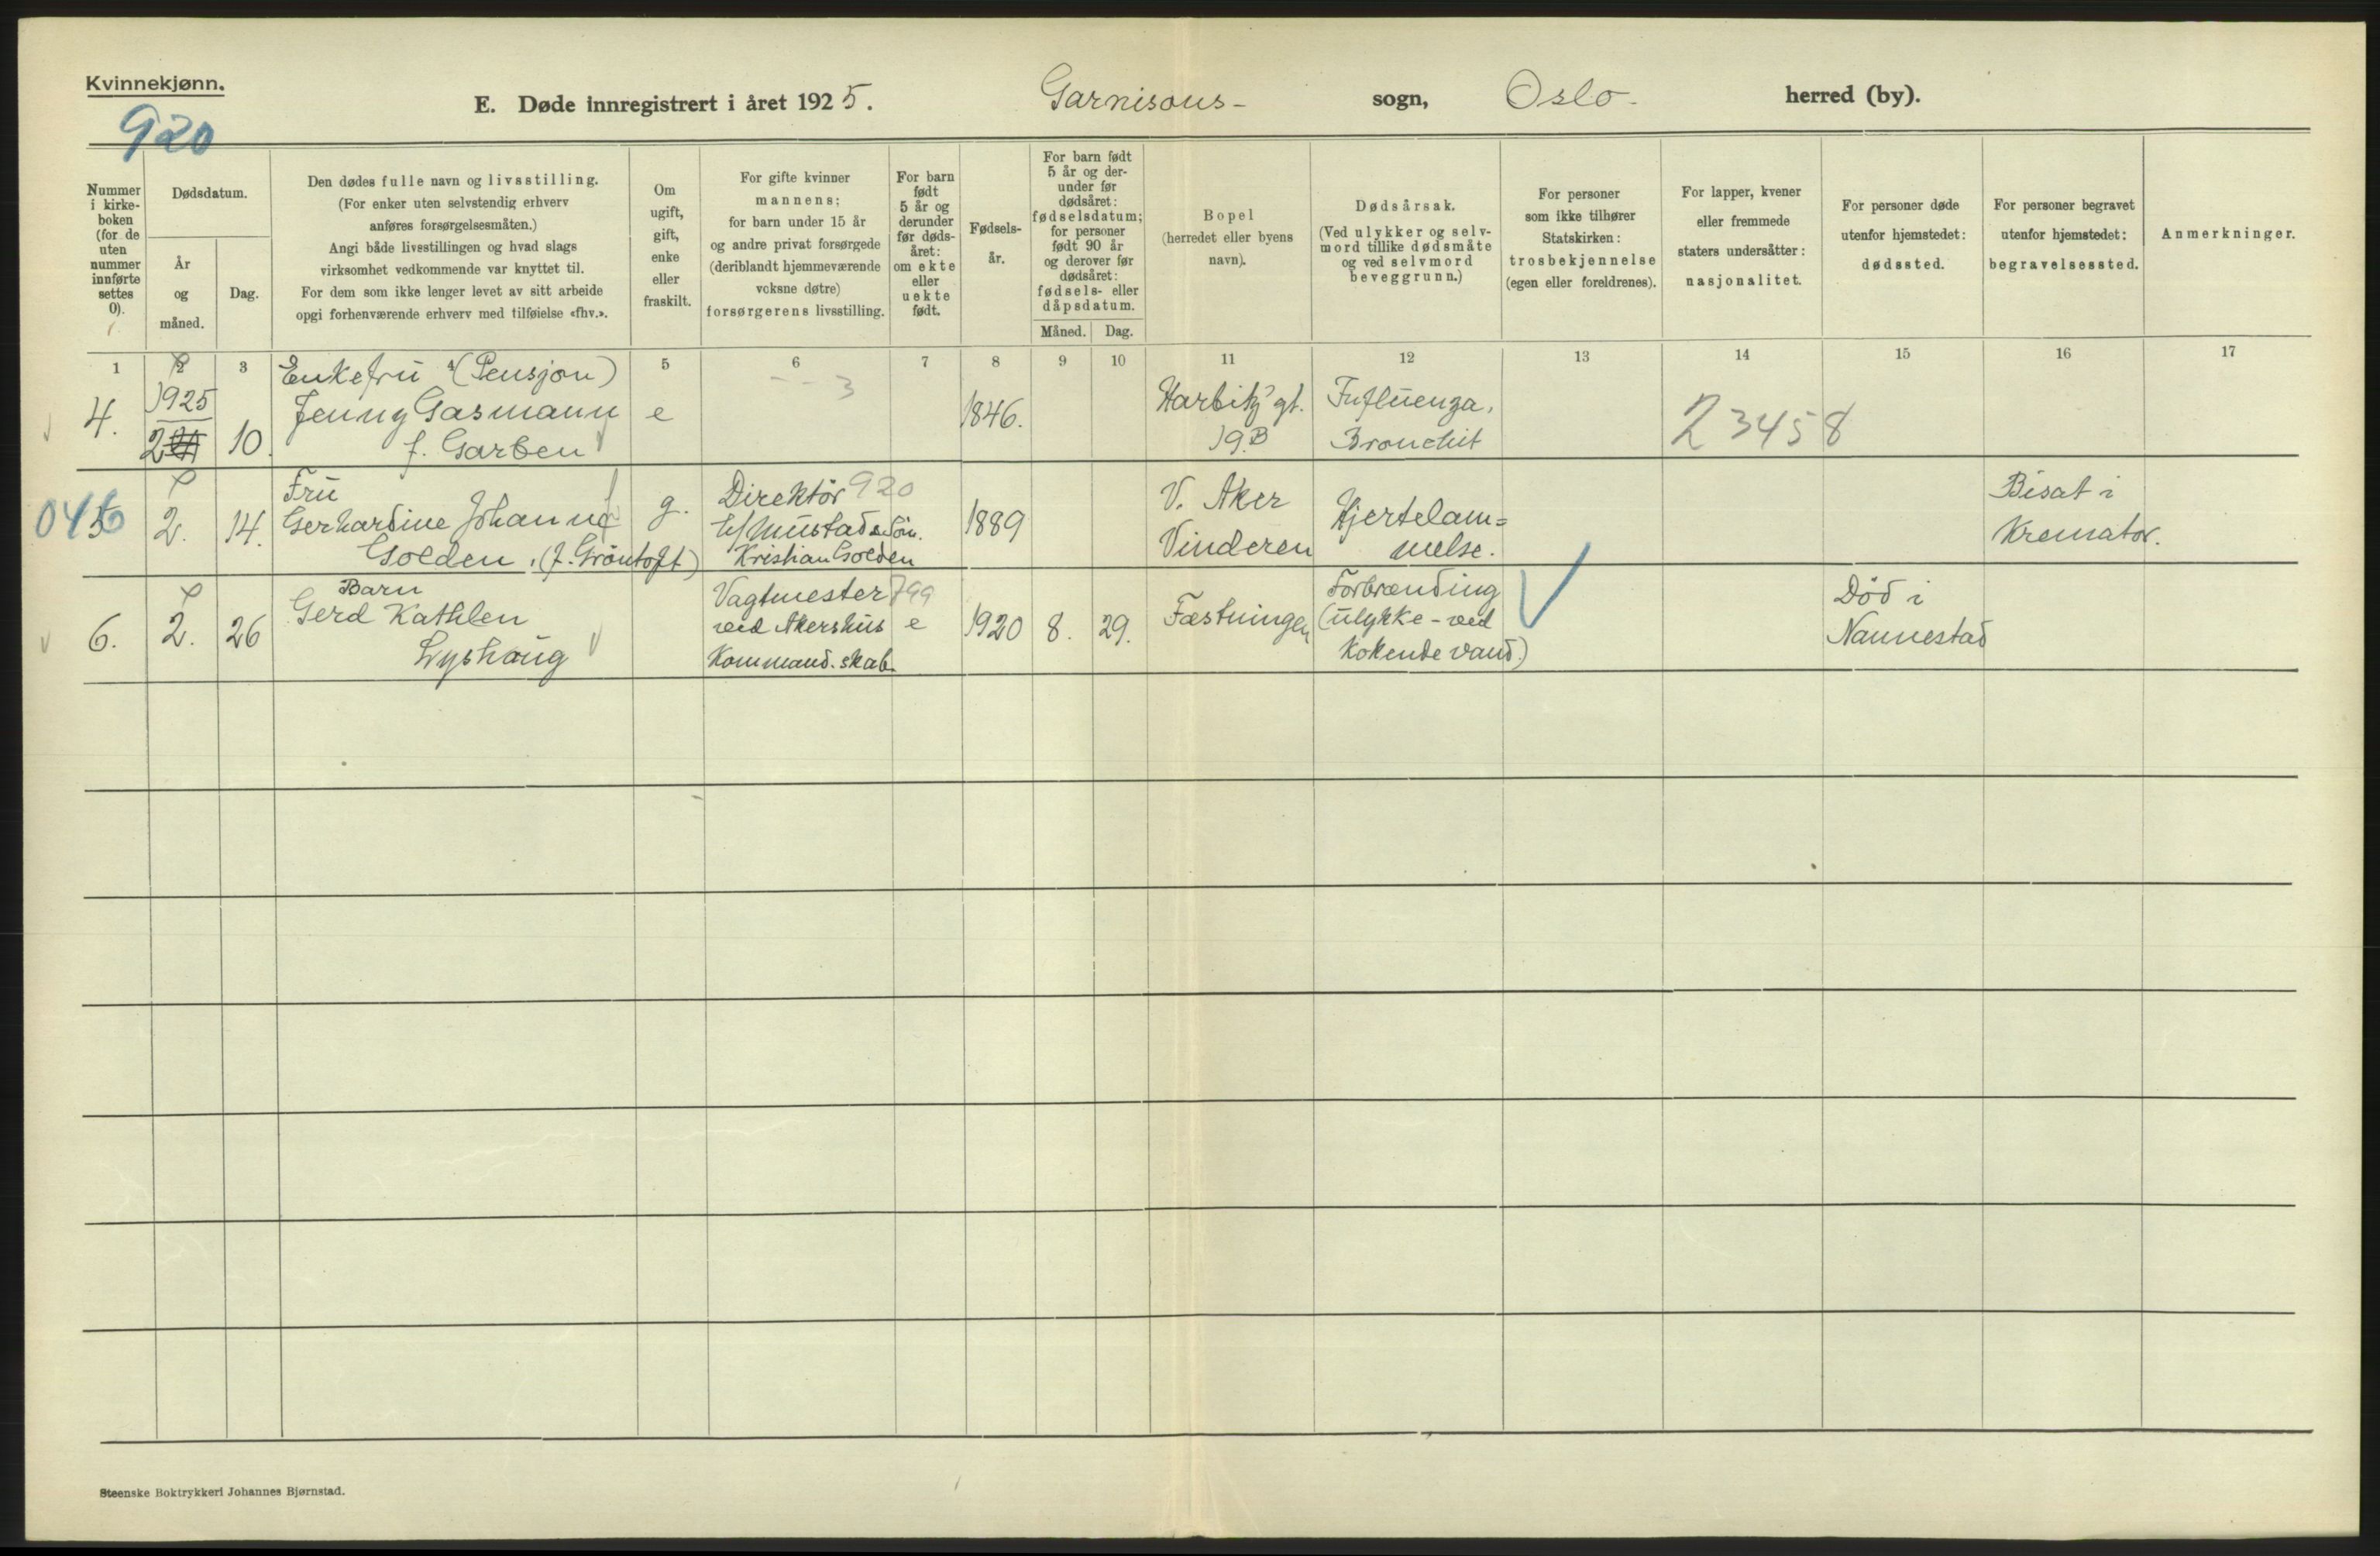 Kvinnekjønn.
920
E. Døde innregistrert i året 1925. Garnisons- sogn, Oslo- herred (by).
Nummer i kirke-boken (for de uten nummer innførte settes 0).
Dødsdatum.
År og måned.
Dag.
Den dødes fulle navn og livsstilling.
(For enker uten selvstendig erhverv
anføres forsørgelsesmåten.)
Angi både livsstillingen og hvad slags
virksomhet vedkommende var knyttet til.
For dem som ikke lenger levet av sitt arbeide
opgi forhenværende erhverv med tilføielse «fhv.».
Om
ugift,
gift,
enke
eller
fraskilt.
For gifte kvinner
mannens;
for barn under 15 år
og andre privat forsørgede
(deriblandt hjemmeværende
voksne døtre)
forsørgerens livsstilling.
For barn
født
5 år og
derunder
før døds-
året:
om ekte
eller
uekte
født.
Fødsels-
år.
For barn født
5 år og der-
under før
dødsåret:
fødselsdatum;
for personer
født 90 år
og derover før
dødsåret:
fødsels- eller
dåpsdatum.
Måned. Dag.
Bopel
(herredet eller byens
navn).
Dødsårsak.
(Ved ulykker og selv-
mord tillike dødsmåte
og ved selvmord
beveggrunn.)
For personer
som ikke tilhører
Statskirken:
trosbekjennelse
(egen eller foreldrenes).
For lapper, kvener
eller fremmede
staters undersåtter:
nasjonalitet.
For personer døde
utenfor hjemstedet:
dødssted.
For personer begravet
utenfor hjemstedet:
begravelsessted.
Anmerkninger.
1 2 3 5 6 7 8 9 10 11 12 13 14 15 16 17
4.
1925
2
10.
Enkefru (Pensjon)
Jenny Gasmann
f. Garben
e
3
1846.
Harbitz' gt.
19B
Influenza,
Bronchit
23458
045
2.
14.
Fru
Gerhardine Johanne
Golden, (f. Gröntoft)
g.
Direktör 920
Mustad & Sön.
Kristian Golden
1889
V. Aker
Vinderen
Hjertelam=
melse.
Bisat i
Kremator.
6.
2.
26
Barn
Gerd Kathlen
Lyshaug
Vagtmester 799
ved Akershus
Kommand.skab.
e
1920
8.
29.
Fæstningen
Forbrænding
(ulykke - ved
kokende vand.)
Död i
Nannestad
Steenske Boktrykkeri Johannes Bjørnstad.